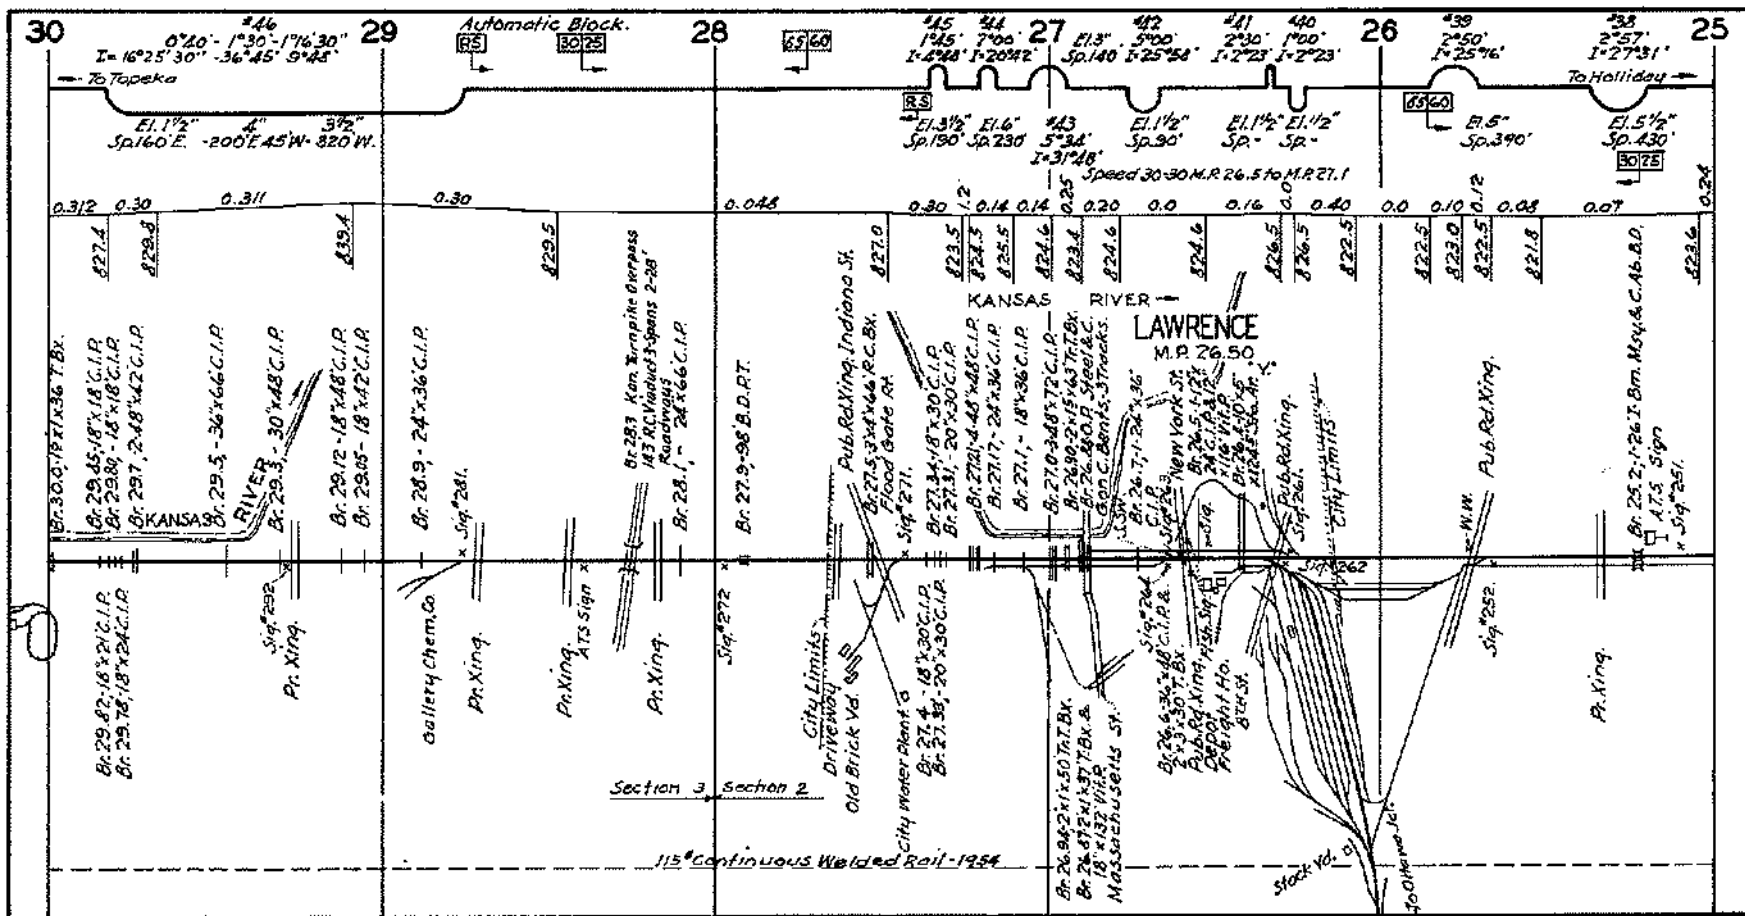 30
29
28
27
26
25
#46
0°40' - 1°30' - 1°16'30"
I= 16°25'30" - 36°45' 9°48'
Automatic Block.
RS
30 25
65 60
#45
1°45'
I=4°48'
#44
7°00'
I=20°42'
El.3"
Sp.140
#42
5°00'
I=25°58'
#41
2°30'
I=2°23'
#40
1°00'
I=2°23'
#39
2°50'
I=25°16'
#38
2°57'
I=27°31'
To Topeka
To Holliday
El. 1 1/2" 4" 3 1/2"
Sp.160'E. -200'E.45'W- 320'W.
RS
El.3 1/2"
Sp.190'
El.6"
Sp.230'
#43
5°34'
I=31°48'
El.1 1/2"
Sp.90'
El.1 1/2"
Sp.-
El.1/2"
Sp.-
65 60
El.5"
Sp.390'
El.5 1/2"
Sp.430'
30 25
Speed 30-30 M.P. 26.5 to M.P. 27.1
0.312 0.30 0.311 0.30 0.048 0.30 1.2 0.14 0.14 0.25 0.20 0.0 0.16 0.0 0.40 0.0 0.10 0.12 0.08 0.07 0.24
827.4 829.8 839.4 829.5 827.0 823.5 824.5 825.5 824.6 823.4 824.6 824.6 826.5 826.5 822.5 822.5 823.0 822.5 821.8 823.6
KANSAS RIVER
LAWRENCE
M.P. 26.50
Br. 29.45,-18"x18' C.I.P.
Br. 29.80,-18"x18' C.I.P.
Br. 29.7, 2-48"x42' C.I.P.
Br. 29.5,-36"x66' C.I.P.
Br. 29.3,-30"x48' C.I.P.
Br. 29.12-18"x48' C.I.P.
Br. 29.05-18"x42' C.I.P.
Br. 28.9,-24"x36' C.I.P.
Sig.#281.
Br. 28.3 Kan. Turnpike Overpass
183' R.C. Viaduct 3-Spans 2-28'
Roadways
Br. 28.1,- 24"x66' C.I.P.
Br. 27.9-98' B.D.P.T.
Pub.Rd.Xing. Indiana St.
Br. 27.5,-3'x4'x66' R.C.Bx.
Flood Gate Rt.
Sig.#271.
Br. 27.34,-18"x30' C.I.P.
Br. 27.31,-20"x30' C.I.P.
Br. 27.21,-4-48"x48' C.I.P.
Br. 27.17,-24"x36' C.I.P.
Br. 27.1,-18"x36' C.I.P.
Br. 27.0-3-48"x72' C.I.P.
Con. C. Bents,-3 Tracks.
Sw.
Br. 26.7,-1-24"x36'
C.I.P.
Sig.#263.
New York St.
"Y"
Pub.Rd.Xing.
Sig.#261.
City Limits
W.W.
Pub.Rd.Xing.
A.T.S. Sign
Sig.#251.
KANSAS RIVER
Br. 29.82,-18"x21' C.I.P.
Br. 29.78,-18"x24' C.I.P.
Sig.#292
Pr. Xing.
Gallery Chem. Co.
Pr. Xing.
Pr. Xing.
A.T.S Sign
Pr. Xing.
Sig.#272
City Limits
Driveway
Old Brick Yd.
City Water Plant
Br. 27.4,-18"x30' C.I.P.
Br. 27.33,-20"x30' C.I.P.
Br. 26.94,-2'x1'x50' Tr.T.Bx.
Br. 26.87,-2'x1'x37' T.Bx.&
18"x132' Vit.P.
Massachusetts St.
Sig.#264
Br. 26.6,-36"x48' C.I.P.&
2'x3'x30' T.Bx.
Pub.Rd.Xing.
Depot
Hsh.Sig.
Freight Ho.
8th St.
Sig.#262
Sig.#252
Pr. Xing.
Section 3
Section 2
115# Continuous Welded Rail-1954
Stock Yd.
To Ottawa Jct.